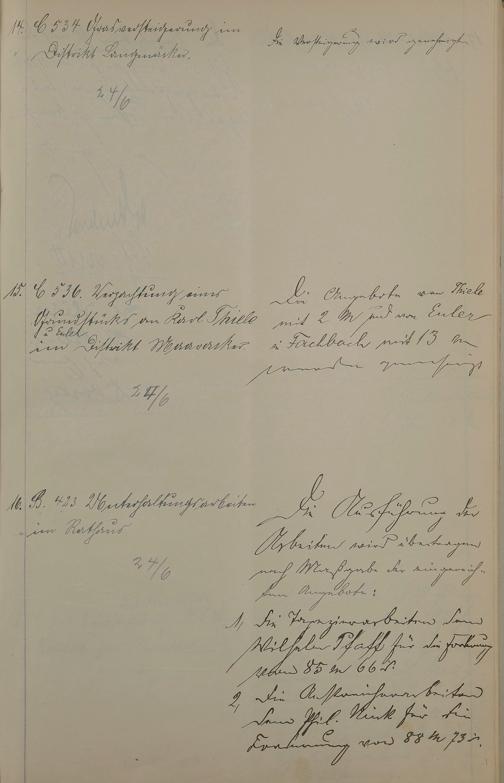 14. C 534 Grasversteigerung im
Distrikt Langenäcker.
24/6
Die Versteigerung wird genehmigt.
15. C 536. Verpachtung eines
Grundstücks an Karl Thiele
u Euler
im Distrikt
24/6
Die Angebote von Thiele
mit 2 M und von Euler
u Fachbach mit 13 M
werden genehmigt
16. B. 423 Unterhaltungsarbeiten
im Rathaus
24/6
Die Ausführung der
Arbeiten wird übertragen
nach Maßgabe der eingereich-
ten Angebote:
1, die Tapezierarbeiten dem
Wilhelm Pfaff für die Forderung
von 85 M 66 d.
2, die Anstreicherarbeiten
dem Phil. Rink für die
Forderung von 88 M 73 d.